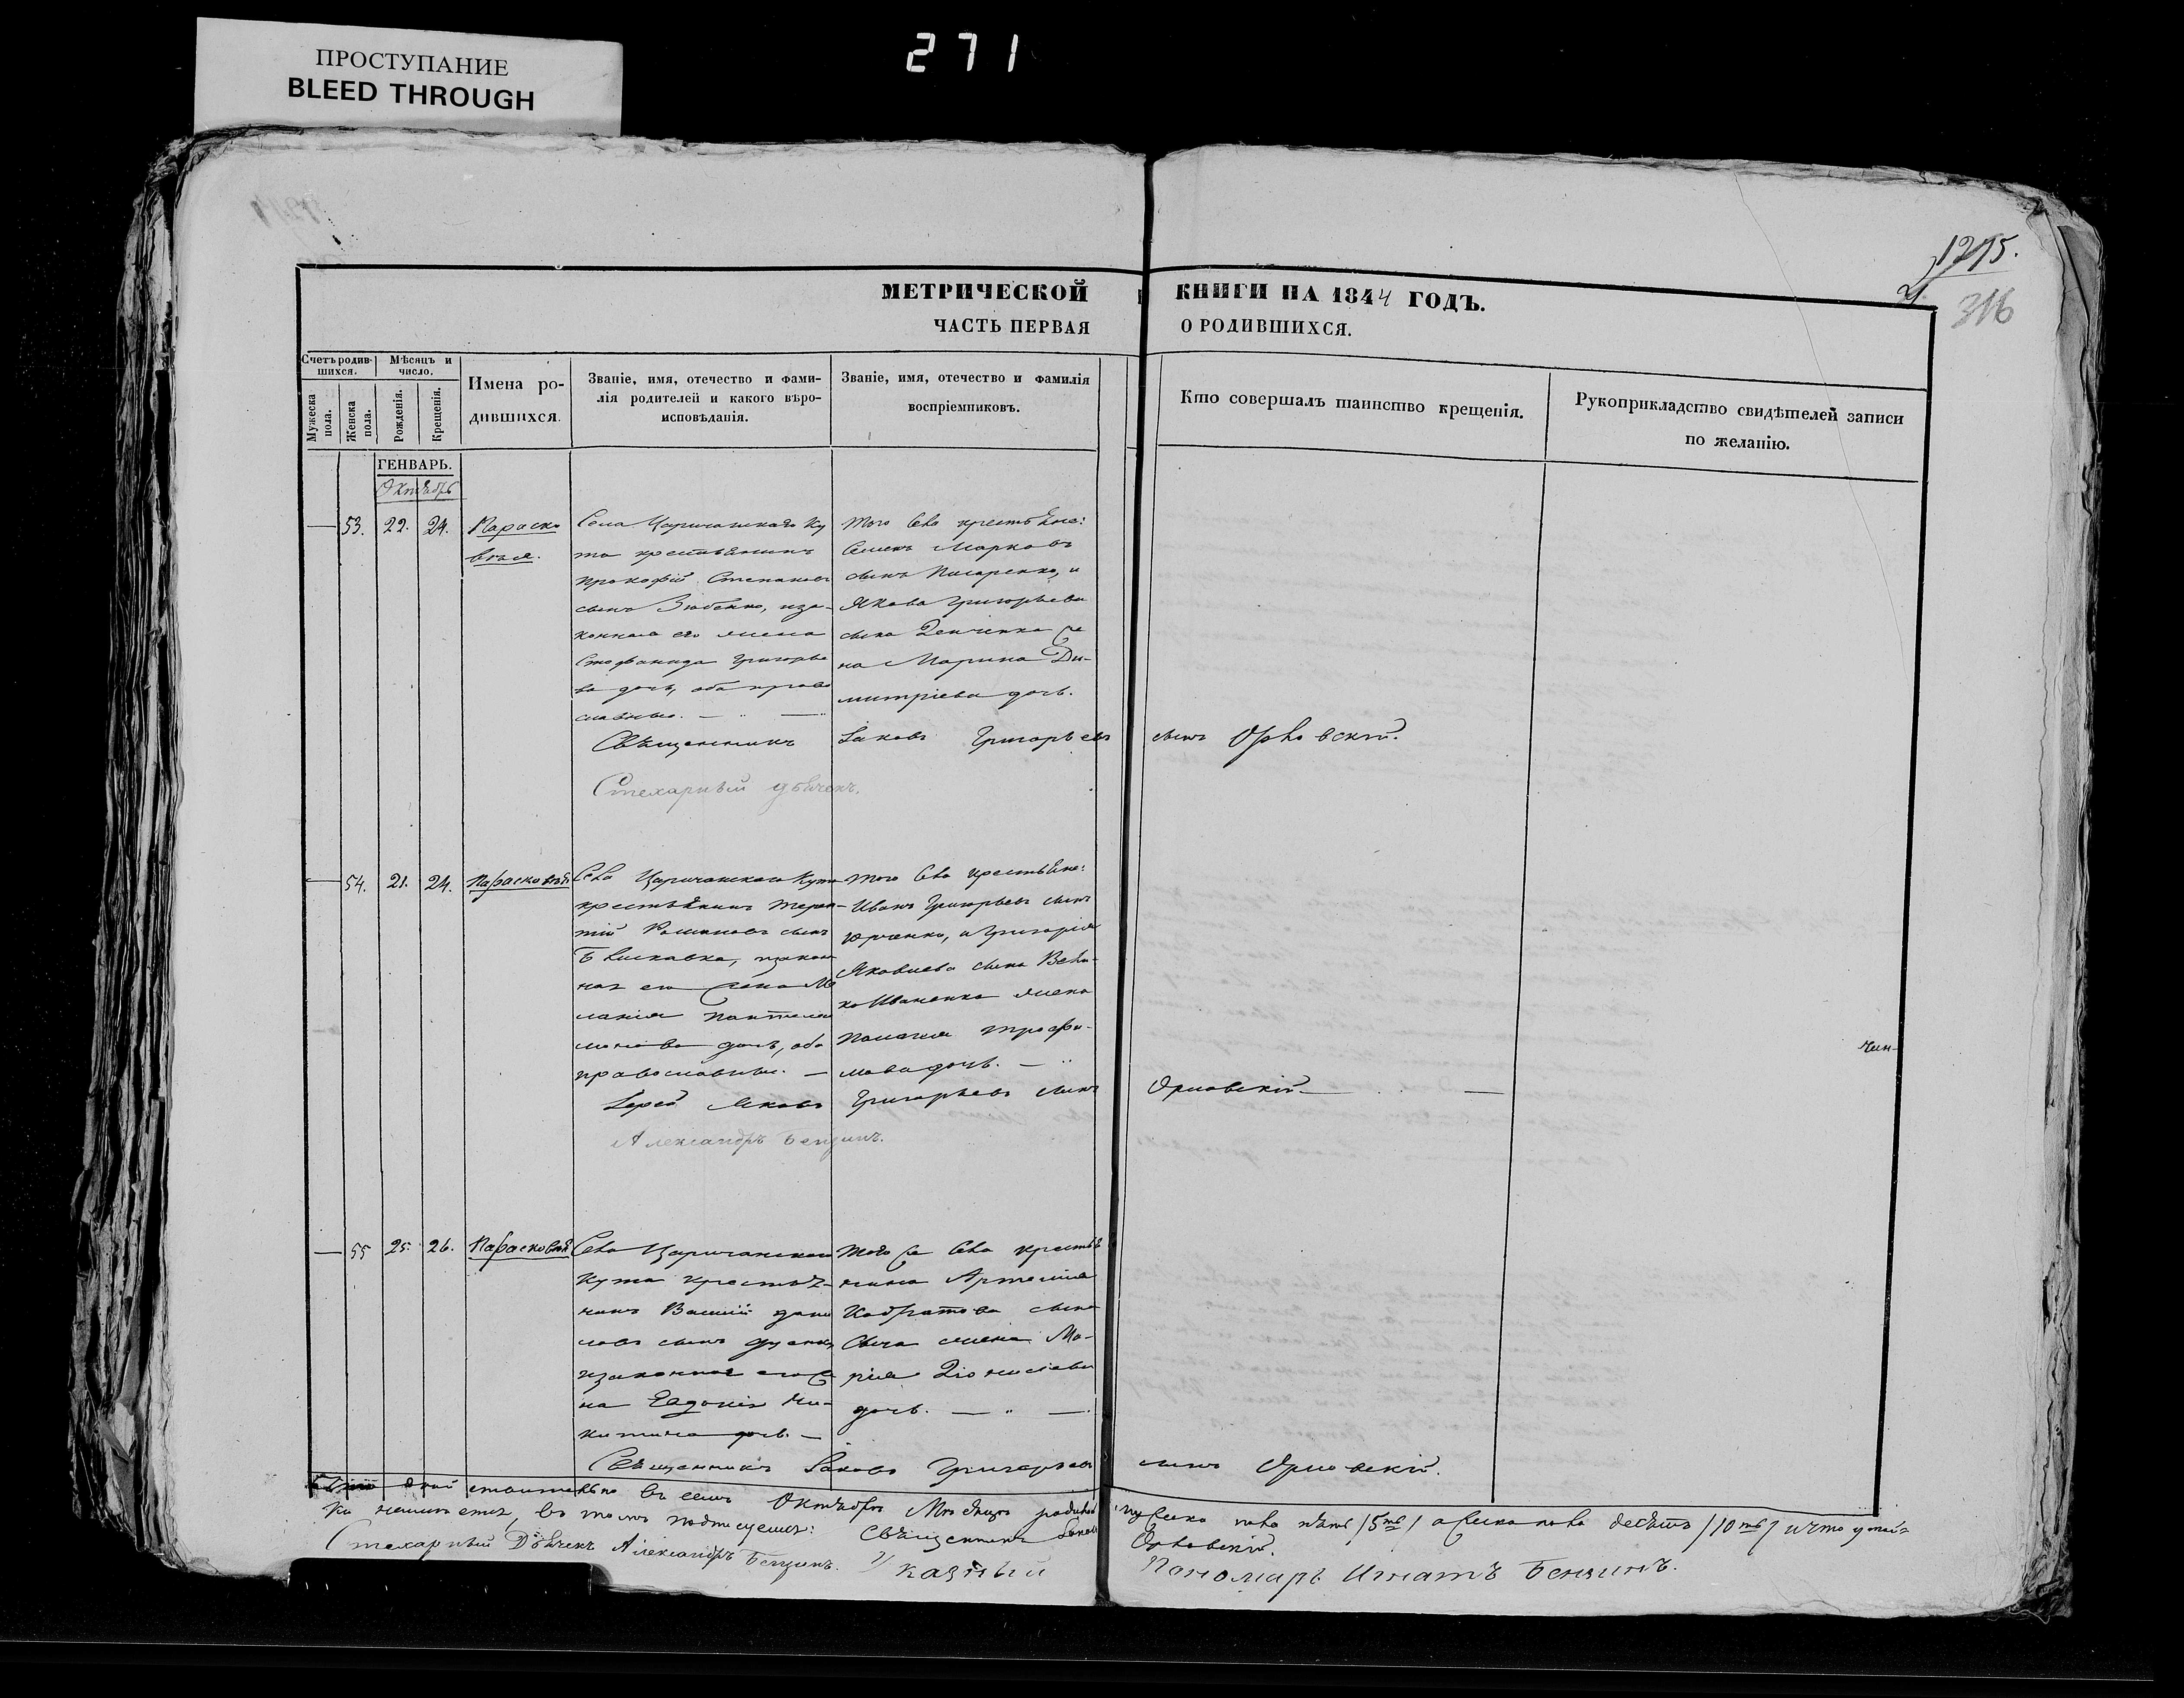 ПРОСТУПАНИЕ
BLEED THROUGH
271
1215.
316
МЕТРИЧЕСКОЙ КНИГИ НА 1844 ГОДЪ.
ЧАСТЬ ПЕРВАЯ О РОДИВШИХСЯ.
Счетъ родив-
шихся.
Мужеска пола.
Женска пола.
Мѣсяцъ и
число.
Рожденія.
Крещенія.
Имена ро-
дившихся.
Званіе, имя, отечество и фами-
лія родителей и какого вѣро-
исповѣданія.
Званіе, имя, отечество и фамилія
воспріемниковъ.
Кто совершалъ таинство крещенія.
Рукоприкладство свидѣтелей записи
по желанію.
ГЕНВАРЬ.
Октябрь
53. 22. 24.
Параско
вѣя.
Села Царичанскаго Ку
та крестьянинъ
Прокофій Степановъ
сынъ Зюбенко, иза-
конная его жена
Стефанида Григорье
ва дочь, оба право
славные.
того села крестьяне:
Семенъ Марковъ
сынъ Писаренко, и
Якова Григорьева
сына Демченка же
на Марина Ди-
митріева дочь.
Священникъ Іаковъ Григорьевъ сынъ Орловскій.
Стехарный дьячекъ.
54. 21. 24.
Парасковѣя
Села Царичанскаго Кута
крестьянинъ Терен-
тій Романовъ сынъ
законная его жена Ме
ланія Пантелеи
монова дочь, оба
православные.
того села крестьяне:
Иванъ Григорьевъ сынъ
Юрченко, и Григорія
Яковлева сына Вели-
ко Иваненка жена
Пелагия Трофи-
мова дочь.
Іерей Іаковъ Григорьевъ сынъ Орловскій
Александръ Бензинъ.
55 25. 26.
Парасковѣя
Села Царичанскаго
Кута крестья-
нинъ Василій Дани
ловъ сынъ
изаконная его же
на Евдокія Ни-
китина дочь.
того же села крестья
нина Артемія
Кодратова сына
Сыча жена Ма-
рія Діонисіева
дочь.
Священникъ Іаковъ Григорьевъ сынъ Орловскій.
въ семъ Октябрѣ Мѣсяцѣ мужеска пола пять /5ть/ а женска пола десять /10ть/ и что
въ томъ подписуемся: Священникъ Іаковъ Орловскій.
Стехарный Дьячекъ Александръ Бензинъ.
Пономарь Игнатъ Бензинъ.